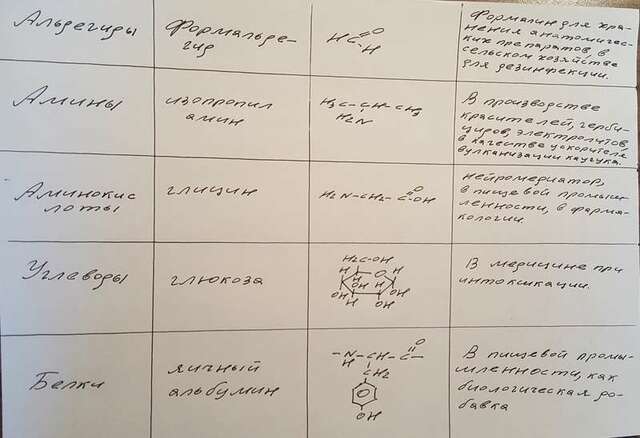 Альдегиды
Формальде-
гид
HC
O
H
Формалин для хра-
нения анатомичес-
ких препаратов, в
сельском хозяйстве
для дезинфекции.
Амины
изопропил
амин
H3C-CH-CH3
H2N
В производстве
красителей, герби-
цидов, электролитов,
в качестве ускорителя
вулканизации каучука.
Аминокис
лоты
глицин
O
H2N-CH2-C-OH
нейромедиатор,
в пищевой промыш-
ленности, в фарма-
кологии.
Углеводы
глюкоза
H2C-OH
H O H
H
OH H
OH
OH
H OH
В медицине при
интоксикации.
Белки
яичный
альбумин
O
-N-CH-C-
H
CH2
OH
В пищевой промы-
мленности, как
биологическая до-
бавка